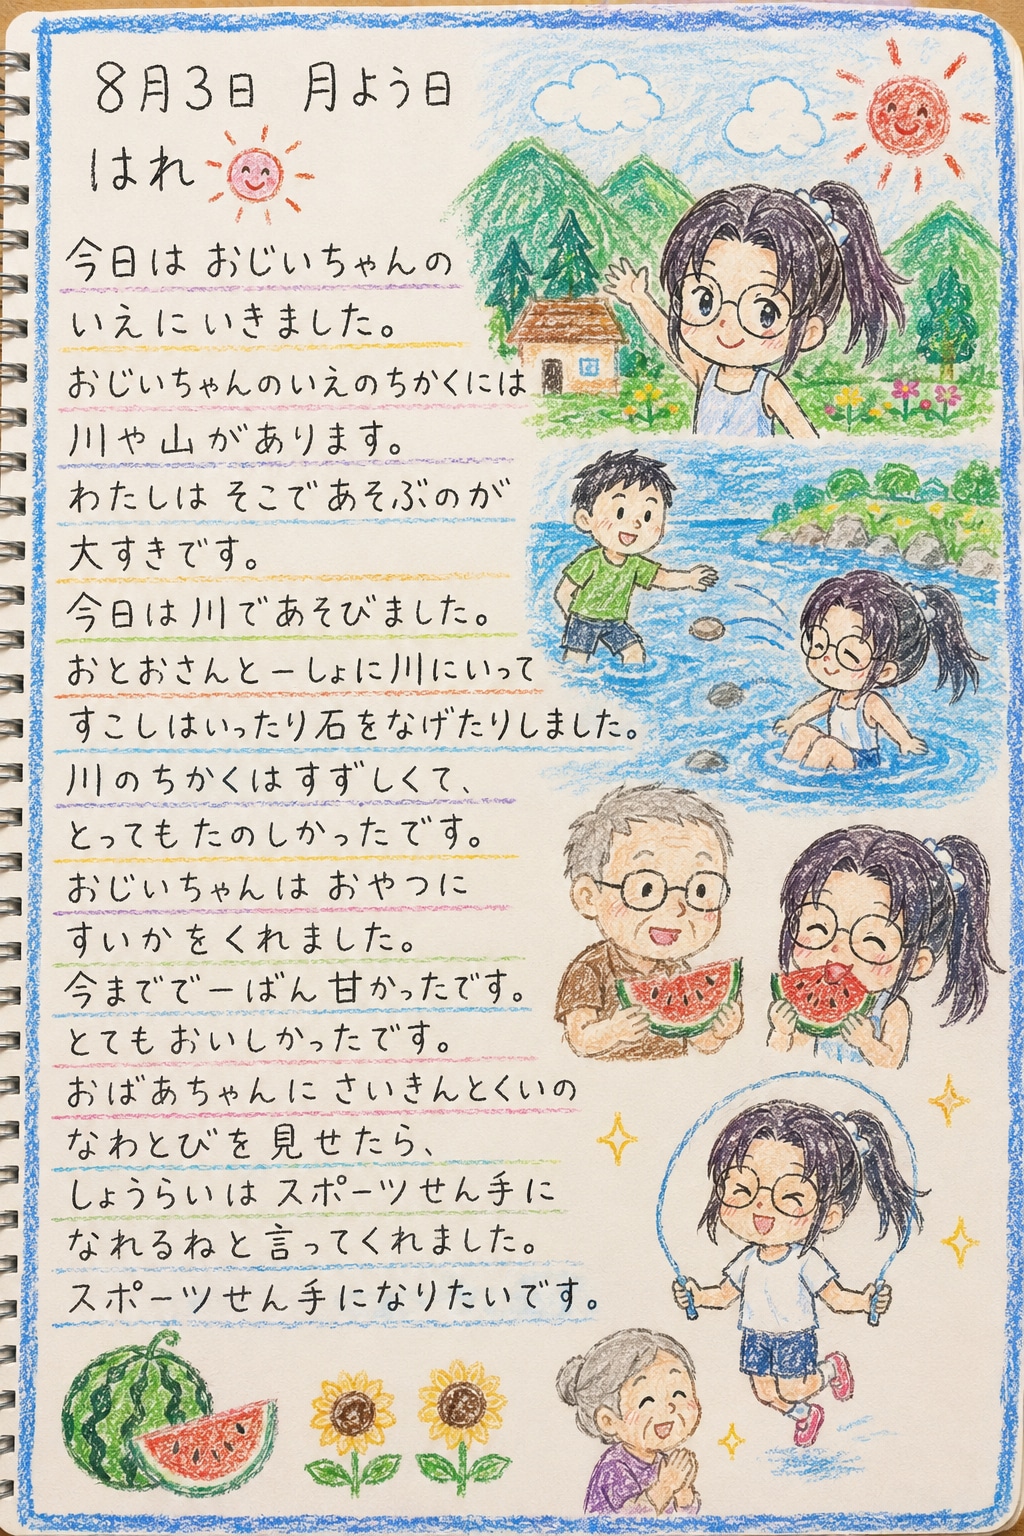 8月3日 月よう日
はれ
今日は おじいちゃんの
いえに いきました。
おじいちゃんのいえのちかくには
川や山があります。
わたしは そこであそぶのが
大すきです。
今日は川であそびました。
おとおさんと一しょに川にいって
すこしはいったり石をなげたりしました。
川のちかくはすずしくて、
とってもたのしかったです。
おじいちゃんは おやつに
すいかをくれました。
今までで一ばん甘かったです。
とてもおいしかったです。
おばあちゃんに さいきんとくいの
なわとびを見せたら、
しょうらいは スポーツせん手に
なれるねと言ってくれました。
スポーツせん手になりたいです。